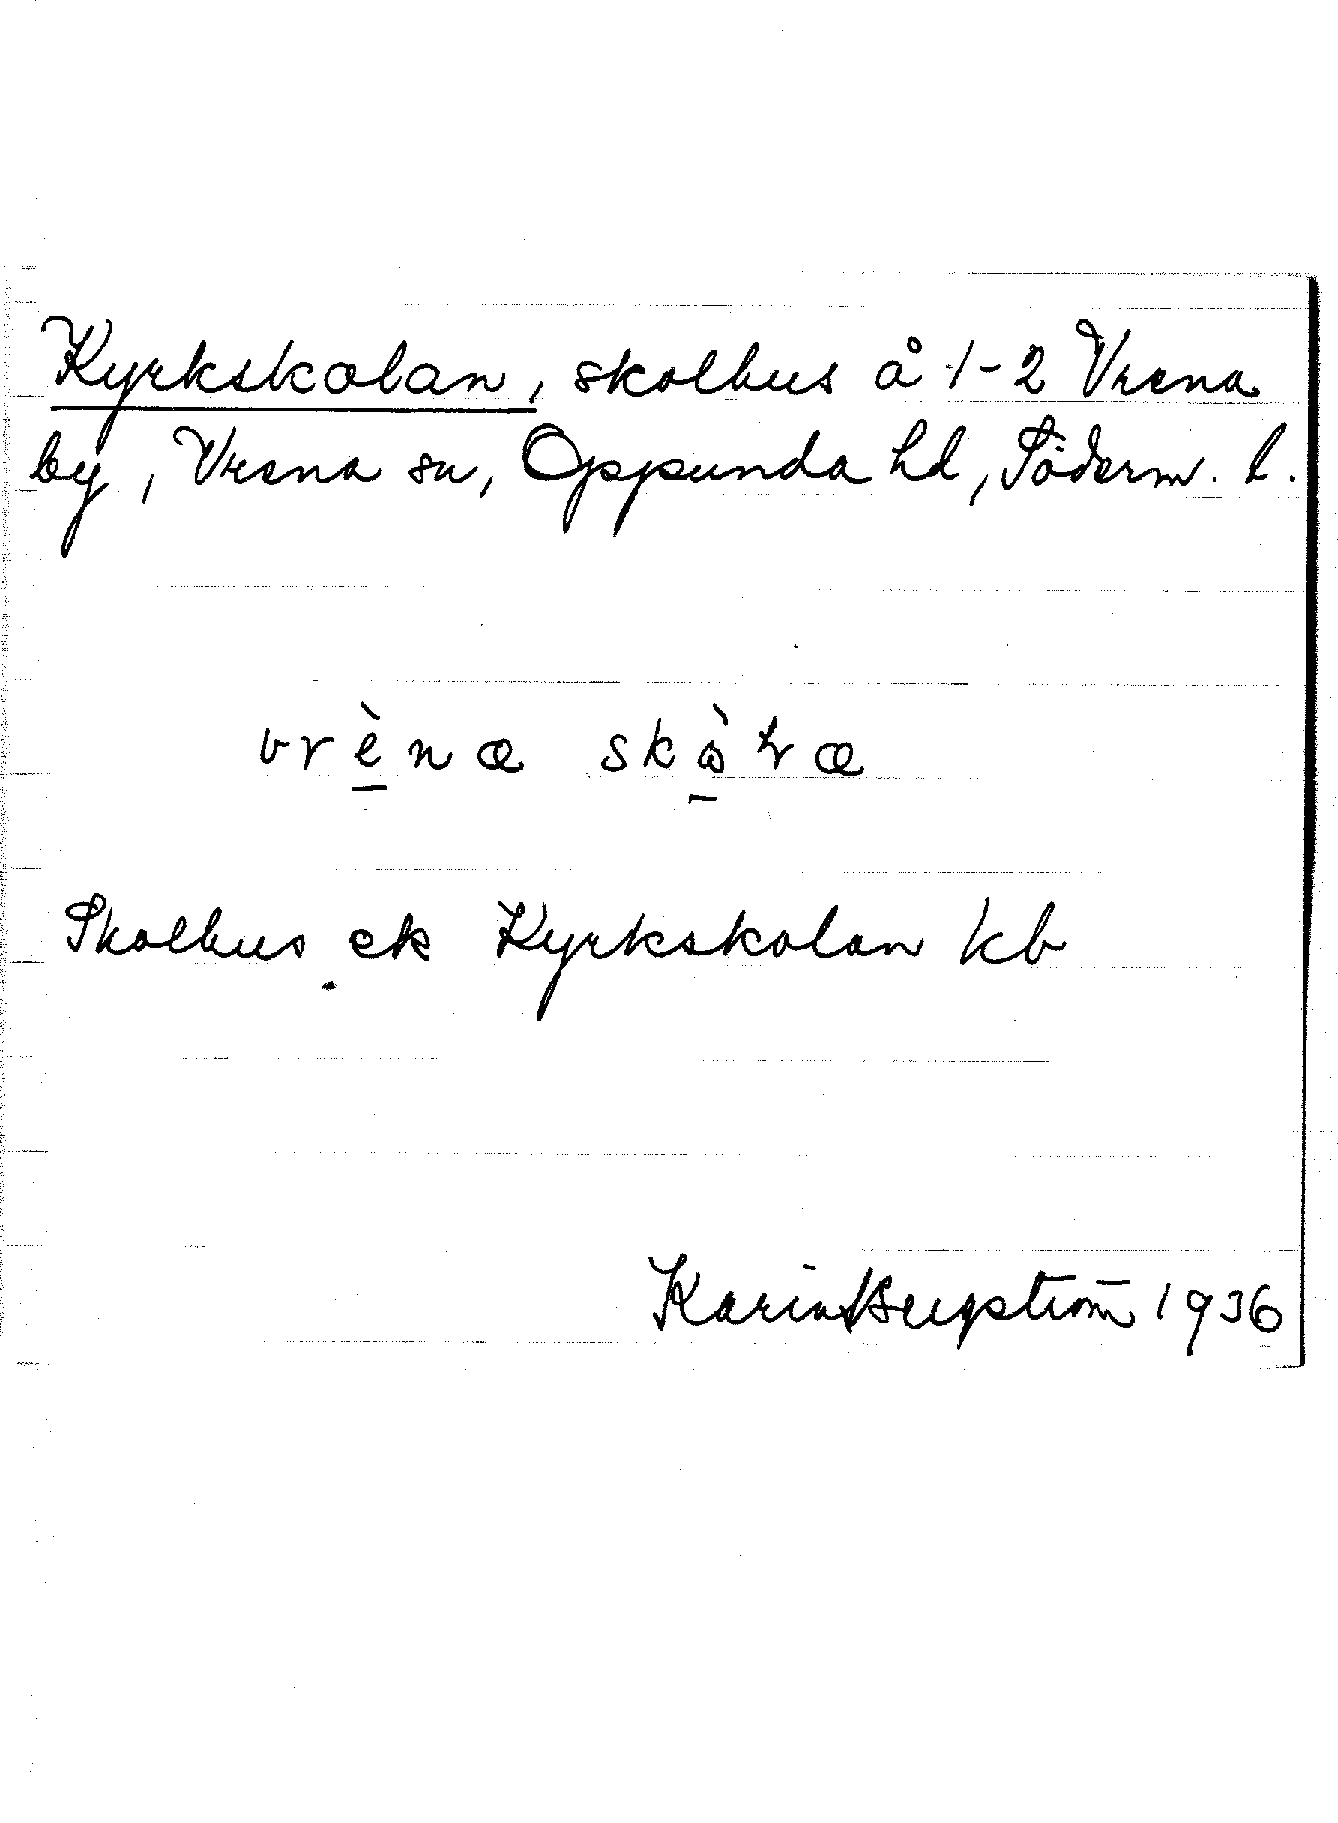 Kyrkskolan, skolhus å 1-2 Vrena
by, Vrena sn, Oppunda hd, Söderm. l.
vrèna
Skolhus ek Kyrkskolan kb
Karin Bergström 1936